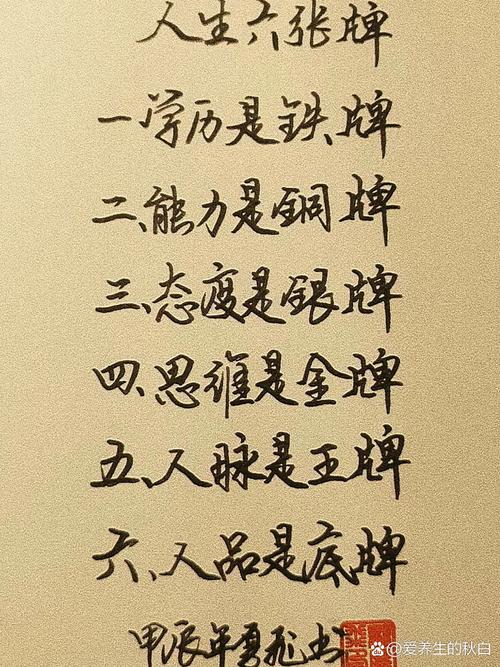 人生六张牌
一学历是铁牌
二、能力是铜牌
三、态度是银牌
四、思维是金牌
五、人脉是王牌
六、人品是底牌
甲辰年 书
@爱养生的秋白